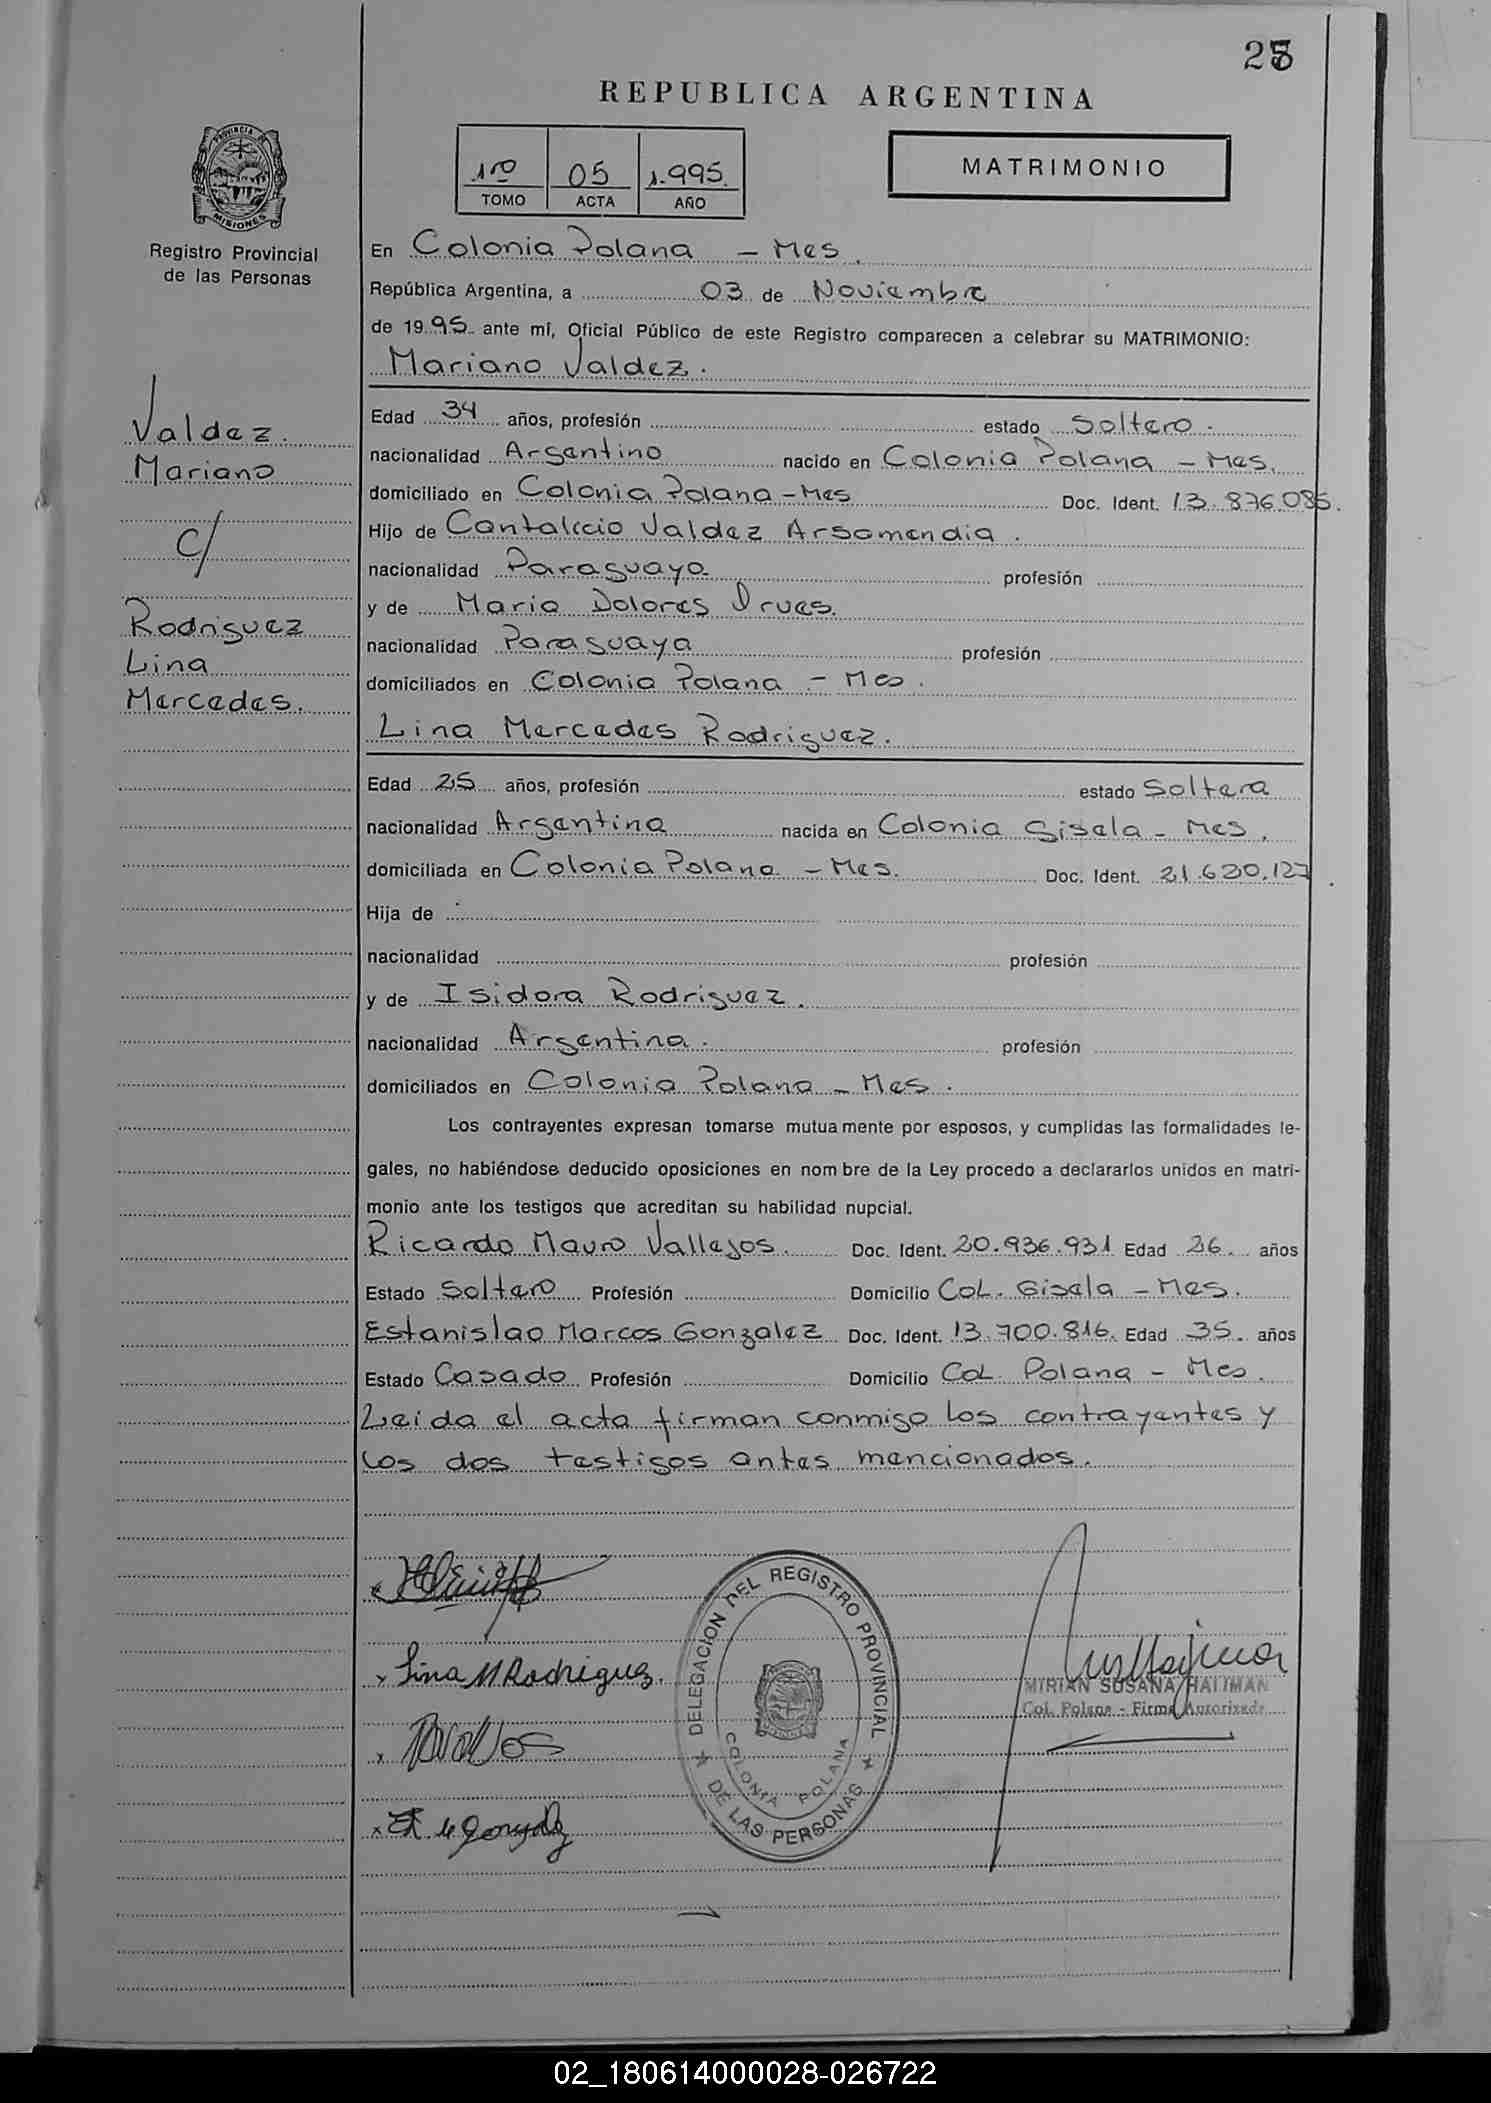 REPUBLICA ARGENTINA
1ro 05 1.995
TOMO ACTA AÑO
MATRIMONIO
PROVINCIA DE MISIONES
Registro Provincial
de las Personas
En Colonia Polana - Mes.
República Argentina, a 03 de Noviembre
de 1995 ante mí, Oficial Público de este Registro comparecen a celebrar su MATRIMONIO:
Mariano Valdez.
Edad 34 años, profesión estado Soltero.
nacionalidad Argentino nacido en Colonia Polana - Mes.
domiciliado en Colonia Polana - Mes Doc. Ident. 13.876.085.
Hijo de Cantalicio Valdez Arsomendia.
nacionalidad Paraguayo profesión
y de Maria Dolores
nacionalidad Paraguaya profesión
domiciliados en Colonia Polana - Mes.
Lina Mercedes Rodriguez.
Edad 25 años, profesión estado Soltera
nacionalidad Argentina nacida en Colonia Gisela - Mes.
domiciliada en Colonia Polana - Mes. Doc. Ident. 21.620.127.
Hija de
nacionalidad profesión
y de Isidora Rodriguez.
nacionalidad Argentina. profesión
domiciliados en Colonia Polana - Mes.
Los contrayentes expresan tomarse mutuamente por esposos, y cumplidas las formalidades le-
gales, no habiéndose deducido oposiciones en nombre de la Ley procedo a declararlos unidos en matri-
monio ante los testigos que acreditan su habilidad nupcial.
Ricardo Mauro Vallejos. Doc. Ident. 20.936.931 Edad 26. años
Estado Soltero Profesión Domicilio Col. Gisela - Mes.
Estanislao Marcos Gonzalez Doc. Ident. 13.700.816. Edad 35. años
Estado Casado Profesión Domicilio Col. Polana - Mes.
Leida el acta firman conmigo los contrayentes y
los dos testigos antes mencionados.
Valdez.
Mariano
c/
Rodriguez
Lina
Mercedes.
x Lina M Rodriguez.
DELEGACION DEL REGISTRO PROVINCIAL
DE LAS PERSONAS
COLONIA POLANA
MIRIAN SUSANA HALIMAN
Col. Polana - Firma Autorizada
02_180614000028-026722